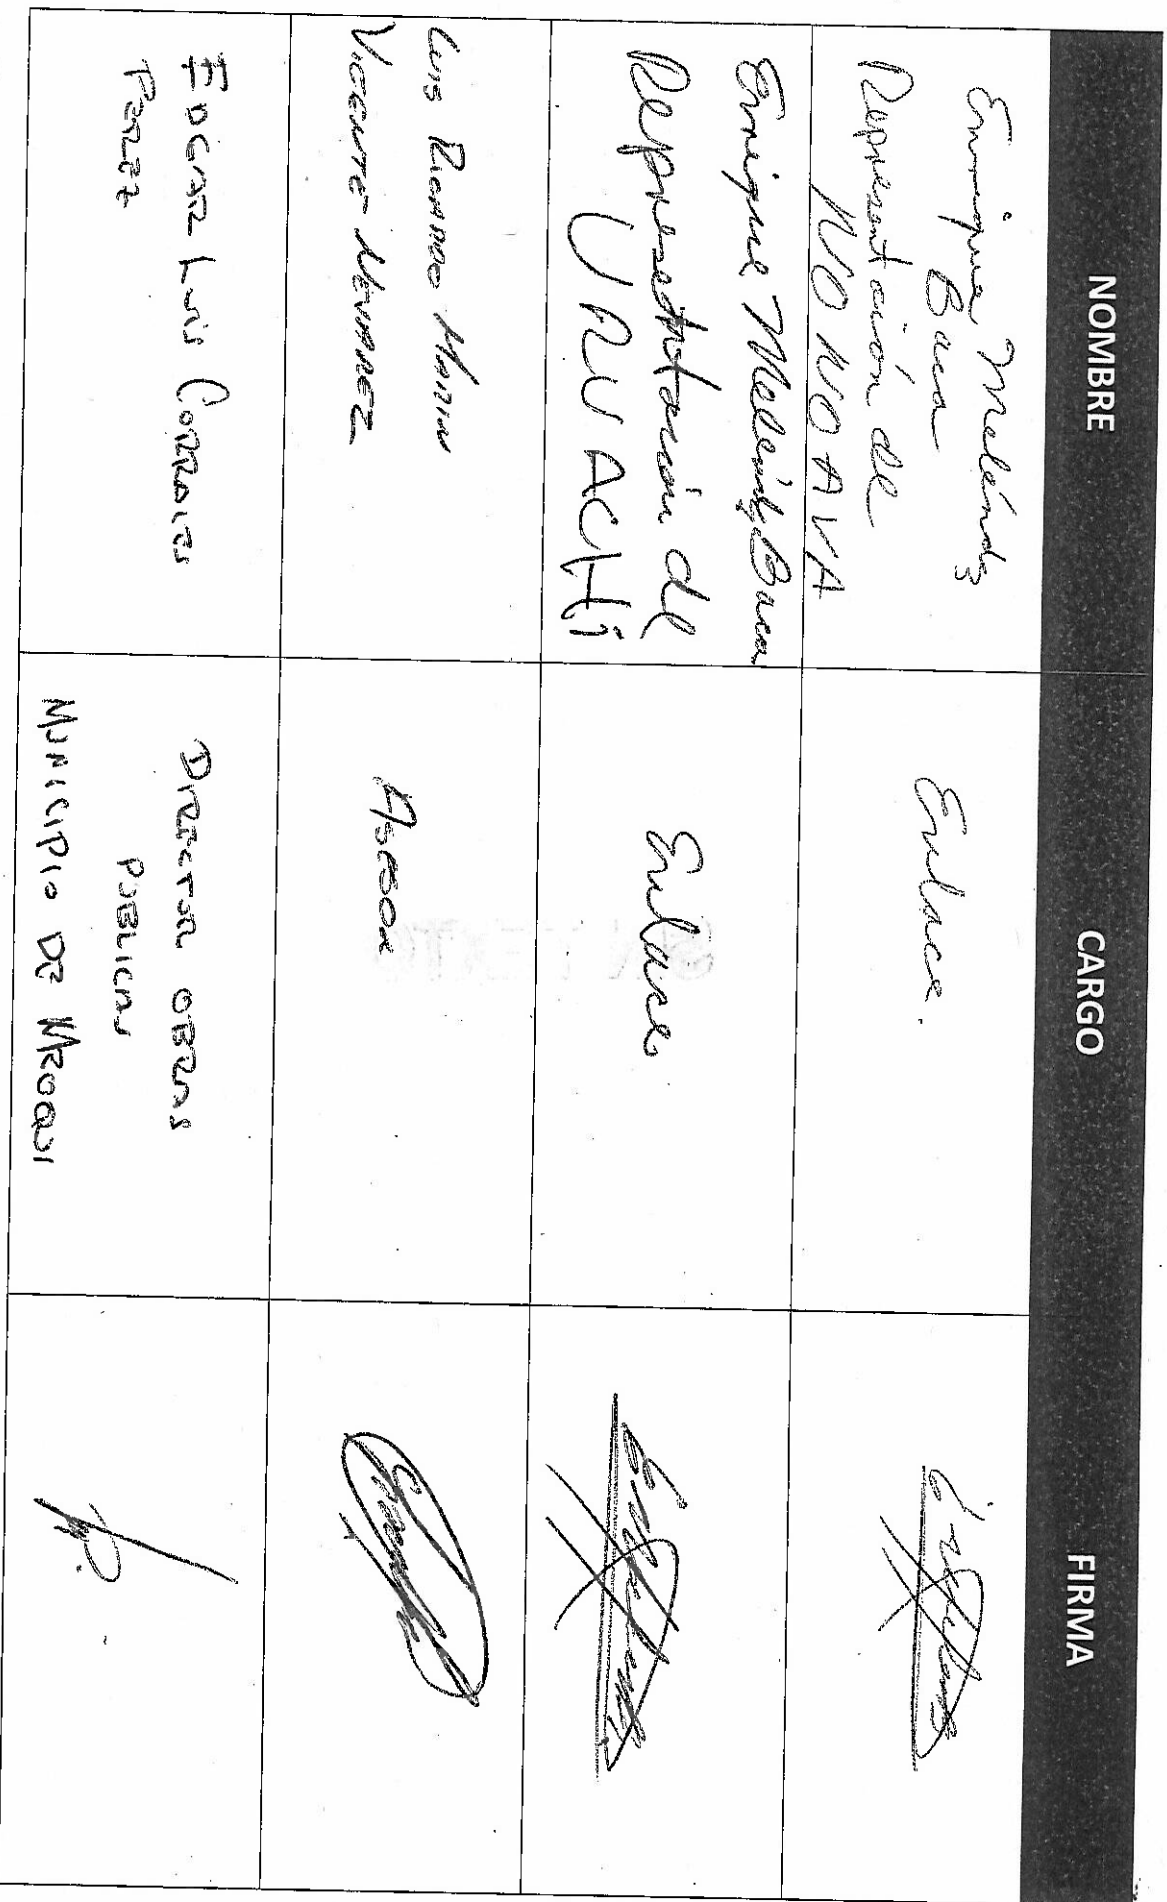 NOMBRE CARGO FIRMA
Enrique Meléndez
Baca
Representación de
NONOAVA
Enlace.
Enrique Meléndez Baca
Representación de
URUACHI
Enlace
Luis Ricardo Marin
Vicente Nevarez
Asesor
Edgar Luis Corrales
Perez
Director obras
Publicas
Municipio de Meoqui